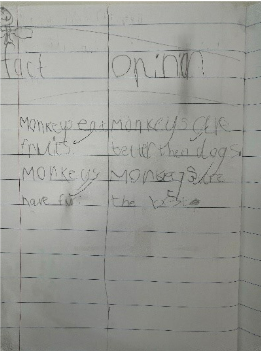 fact opinon
Monkeys eat monkeys are
fruits better then dogs
Monkeys Monkeys are
have the best